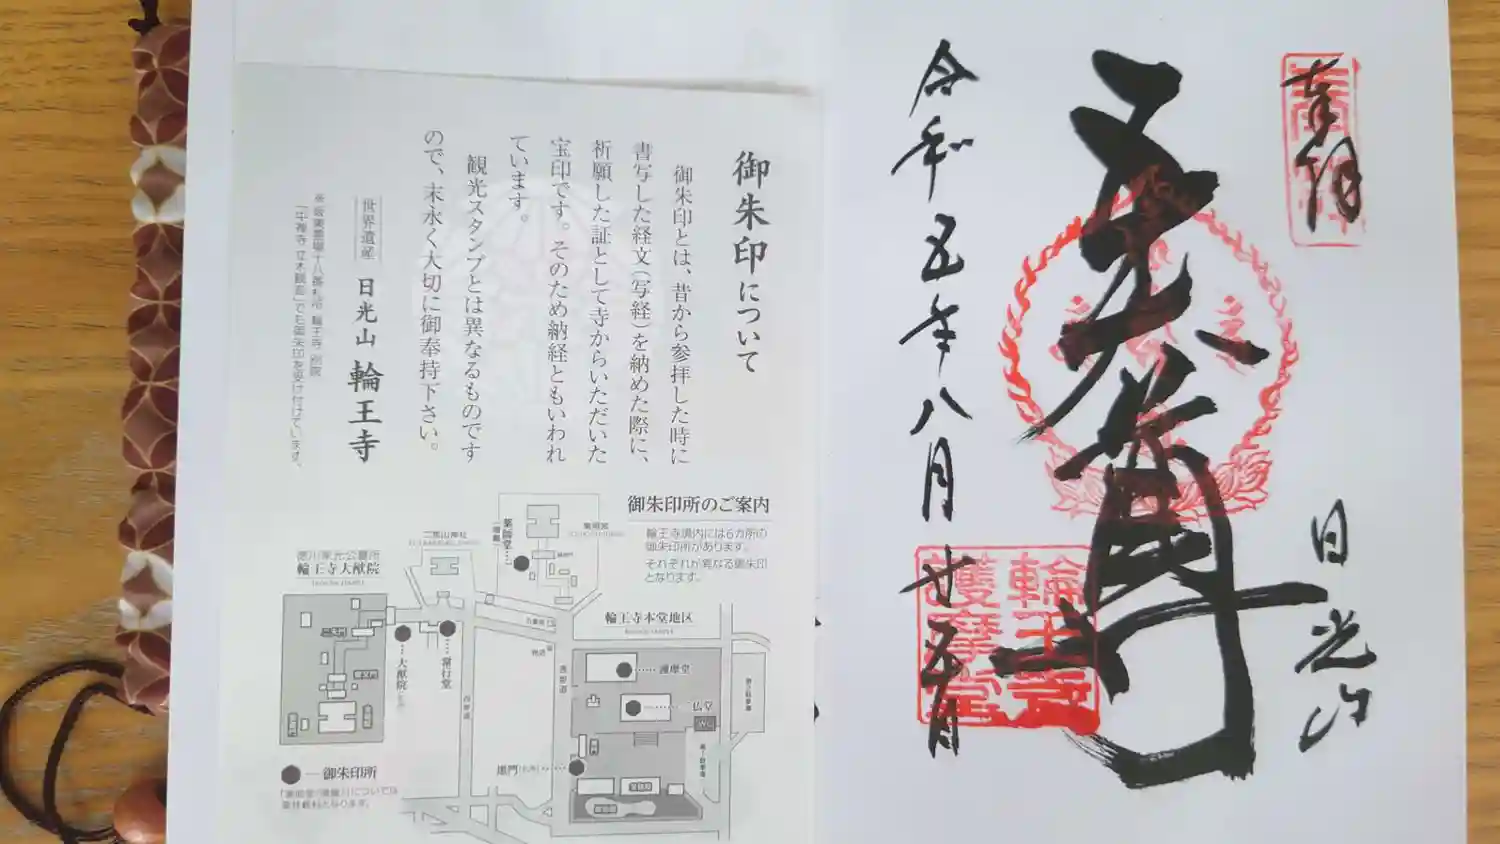 奉拝
日光山
五大尊
令和五年八月廿五日
輪王寺
護摩堂
御朱印について
御朱印とは、昔から参拝した時に
書写した経文(写経)を納めた際に、
祈願した証として寺からいただいた
宝印です。そのため納経ともいわれ
ています。
観光スタンプとは異なるものです
ので、末永く大切に御奉持下さい。
世界遺産 日光山 輪王寺
「中禅寺 立木観音」でも御朱印を受け付けています。
御朱印所のご案内
輪王寺境内には6カ所の
御朱印所があります。
それぞれが異なる御朱印
となります。
二荒山神社
薬師堂
徳川家光公墓所
輪王寺大猷院
輪王寺本堂地区
二天門
大猷院
常行堂
護摩堂
仏堂
西参道
表参道
黒門
御朱印所